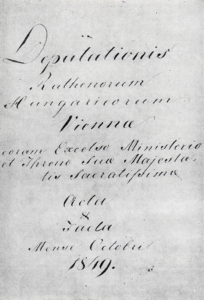 Deputationis
Ruthenorum
Hungaricorum
Viennæ
coram Excelso Ministerio
et Throno Suæ Majesta-
tis Sacratissimæ
Acta
&
Facta
Mense Octobri
1849.